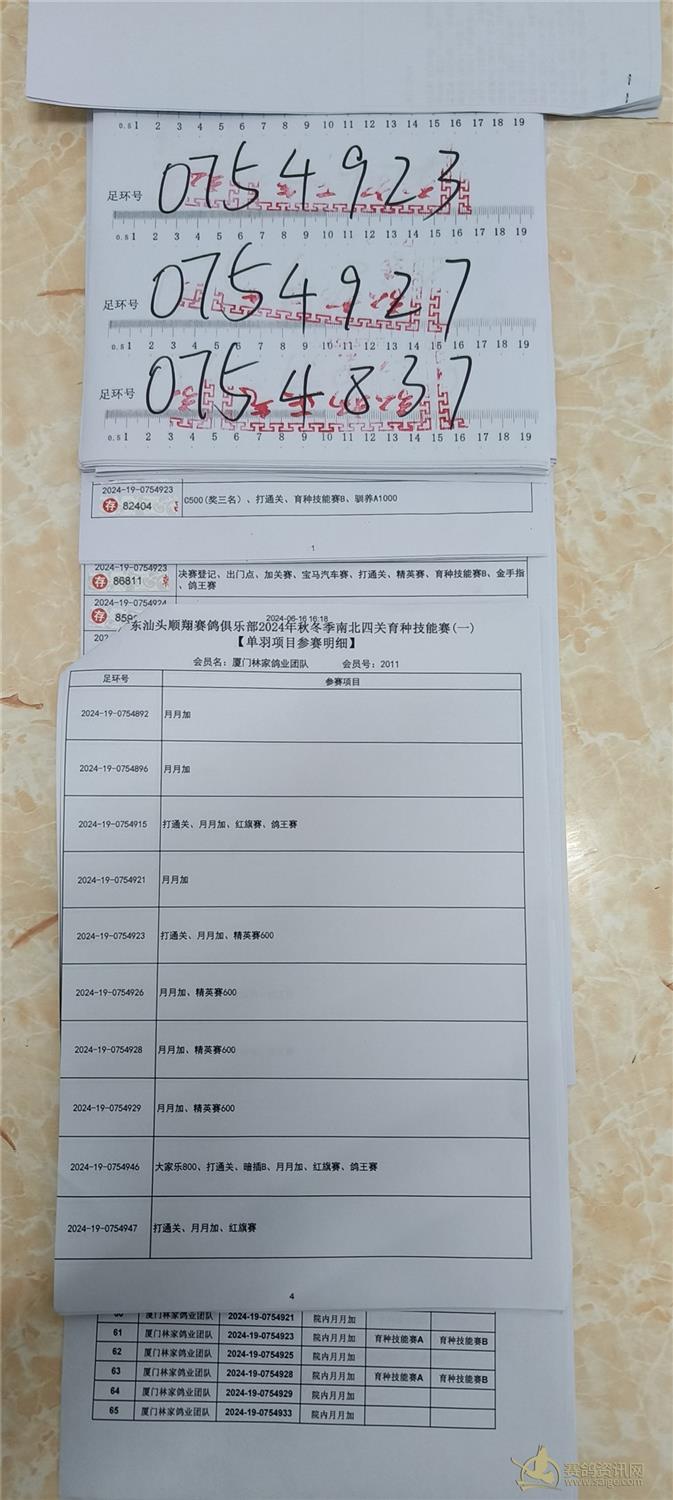 0.5 1 2 3 4 5 6 7 8 9 10 11 12 13 14 15 16 17 18 19
足环号 0754923
0.5 1 2 3 4 5 6 7 8 9 10 11 12 13 14 15 16 17 18 19
足环号 0754927
0.5 1 2 3 4 5 6 7 8 9 10 11 12 13 14 15 16 17 18 19
足环号 0754837
0.5 1 2 3 4 5 6 7 8 9 10 11 12 13 14 15 16 17 18 19
2024-19-0754923
存 82404
C500(奖三名)、打通关、育种技能赛B、驯养A1000
1
2024-19-0754923
存 86811
决赛登记、出门点、加关赛、宝马汽车赛、打通关、精英赛、育种技能赛B、金手指、鸽王赛
2024-19-075492
存 859
2024-06-16 16:18
东汕头顺翔赛鸽俱乐部2024年秋冬季南北四关育种技能赛(一)
【单羽项目参赛明细】
会员名：厦门林家鸽业团队 会员号：2011
足环号 参赛项目
2024-19-0754892 月月加
2024-19-0754896 月月加
2024-19-0754915 打通关、月月加、红旗赛、鸽王赛
2024-19-0754921 月月加
2024-19-0754923 打通关、月月加、精英赛600
2024-19-0754926 月月加、精英赛600
2024-19-0754928 月月加、精英赛600
2024-19-0754929 月月加、精英赛600
2024-19-0754946 大家乐800、打通关、暗插B、月月加、红旗赛、鸽王赛
2024-19-0754947 打通关、月月加、红旗赛
4
厦门林家鸽业团队 2024-19-0754921 院内月月加
61 厦门林家鸽业团队 2024-19-0754923 院内月月加 育种技能赛A 育种技能赛B
62 厦门林家鸽业团队 2024-19-0754925 院内月月加
63 厦门林家鸽业团队 2024-19-0754928 院内月月加 育种技能赛A 育种技能赛B
64 厦门林家鸽业团队 2024-19-0754929 院内月月加
65 厦门林家鸽业团队 2024-19-0754933 院内月月加
赛鸽资讯网
www.saige.com